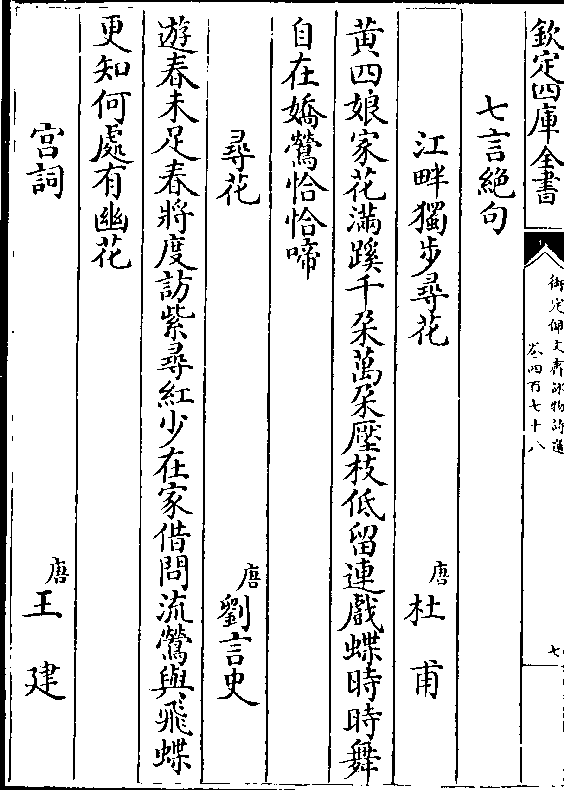 欽定四庫全書
御定佩文齋詠物詩選
卷四百七十八
七
七言絶句
江畔獨步尋花
唐 杜甫
黄四娘家花滿蹊千朶萬朶壓枝低留連戲蝶時時舞
自在嬌鶯恰恰啼
尋花
唐 劉言史
遊春未足春將度訪紫尋紅少在家借問流鶯與飛蝶
更知何處有幽花
宫詞
唐 王建